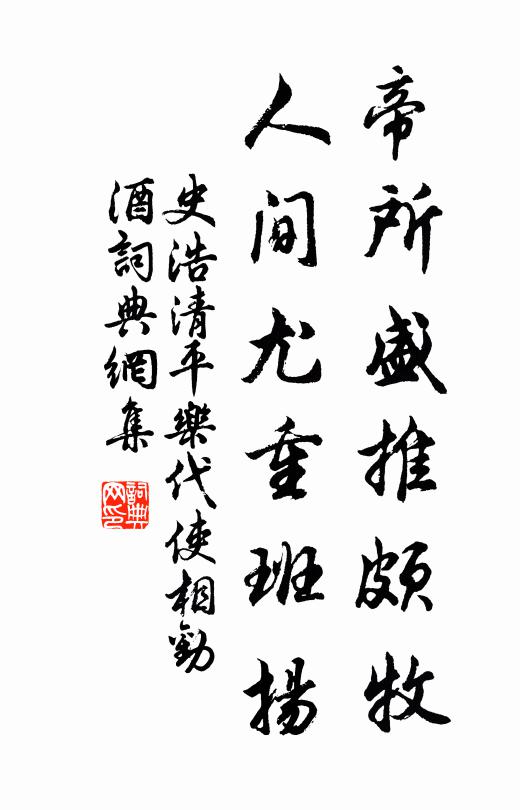 帝所盛推頗牧
人间尤重班揚
史浩清平樂代使相勸
酒詞典網集
詞典网印